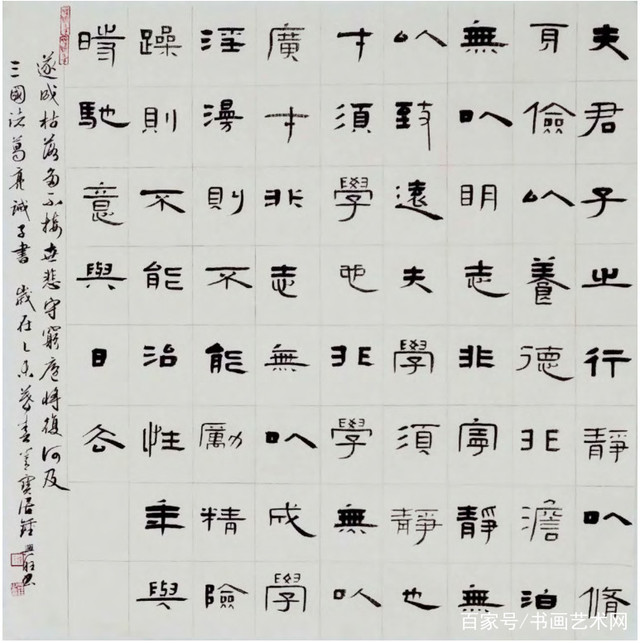 夫君子之行靜以脩
身儉以養德非澹泊
無以明志非寧靜無
以致遠夫學須靜也
才須學也非學無以
廣才非志無以成學
淫漫則不能勵精險
躁則不能治性年與
時馳意與日去
遂成枯落多不接世悲守窮廬將復何及
三國諸葛亮誡子書 歲在乙未暮春
百家号/书画艺术网